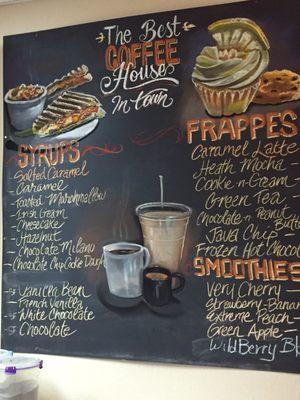 The Best
COFFEE
House
In town
SYRUPS
Salted Caramel
Caramel
Toasted Marshmallow
Irish Cream
Cheesecake
Hazelnut
Chocolate Milano
Chocolate Chip Cookie Dough
SF Vanilla Bean
SF French Vanilla
SF White Chocolate
SF Chocolate
FRAPPES
Caramel Latte
Heath Mocha
Cookie-n-Cream
Green Tea
Chocolate-n-Peanut
Butt
Java Chip
Frozen Hot Choco
SMOOTHIES
Very Cherry
Strawberry-Banan
Extreme Peach
Green Apple
WildBerry Bl